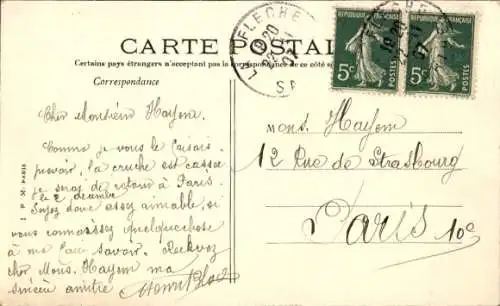 LA FLECHE
20
07
SA
REPUBLIQUE FRANÇAISE
5c
POSTES
REPUBLIQUE FRANÇAISE
5c
POSTES
CARTE POSTALE
Certains pays étrangers n'acceptant pas la correspondance de ce côté
Correspondance
Cher Monsieur Hayem
Comme je vous le faisais
la cruche est cassée
je serai de retour à Paris
le 2 décembre
Soyez donc assez aimable, si
vous connaissez quelque chose
à me faire savoir. Recevez
cher Mons. Hayem ma
sincère amitié
Mons. Hayem
12 Rue de Strasbourg
Paris 10e
I P M PARIS